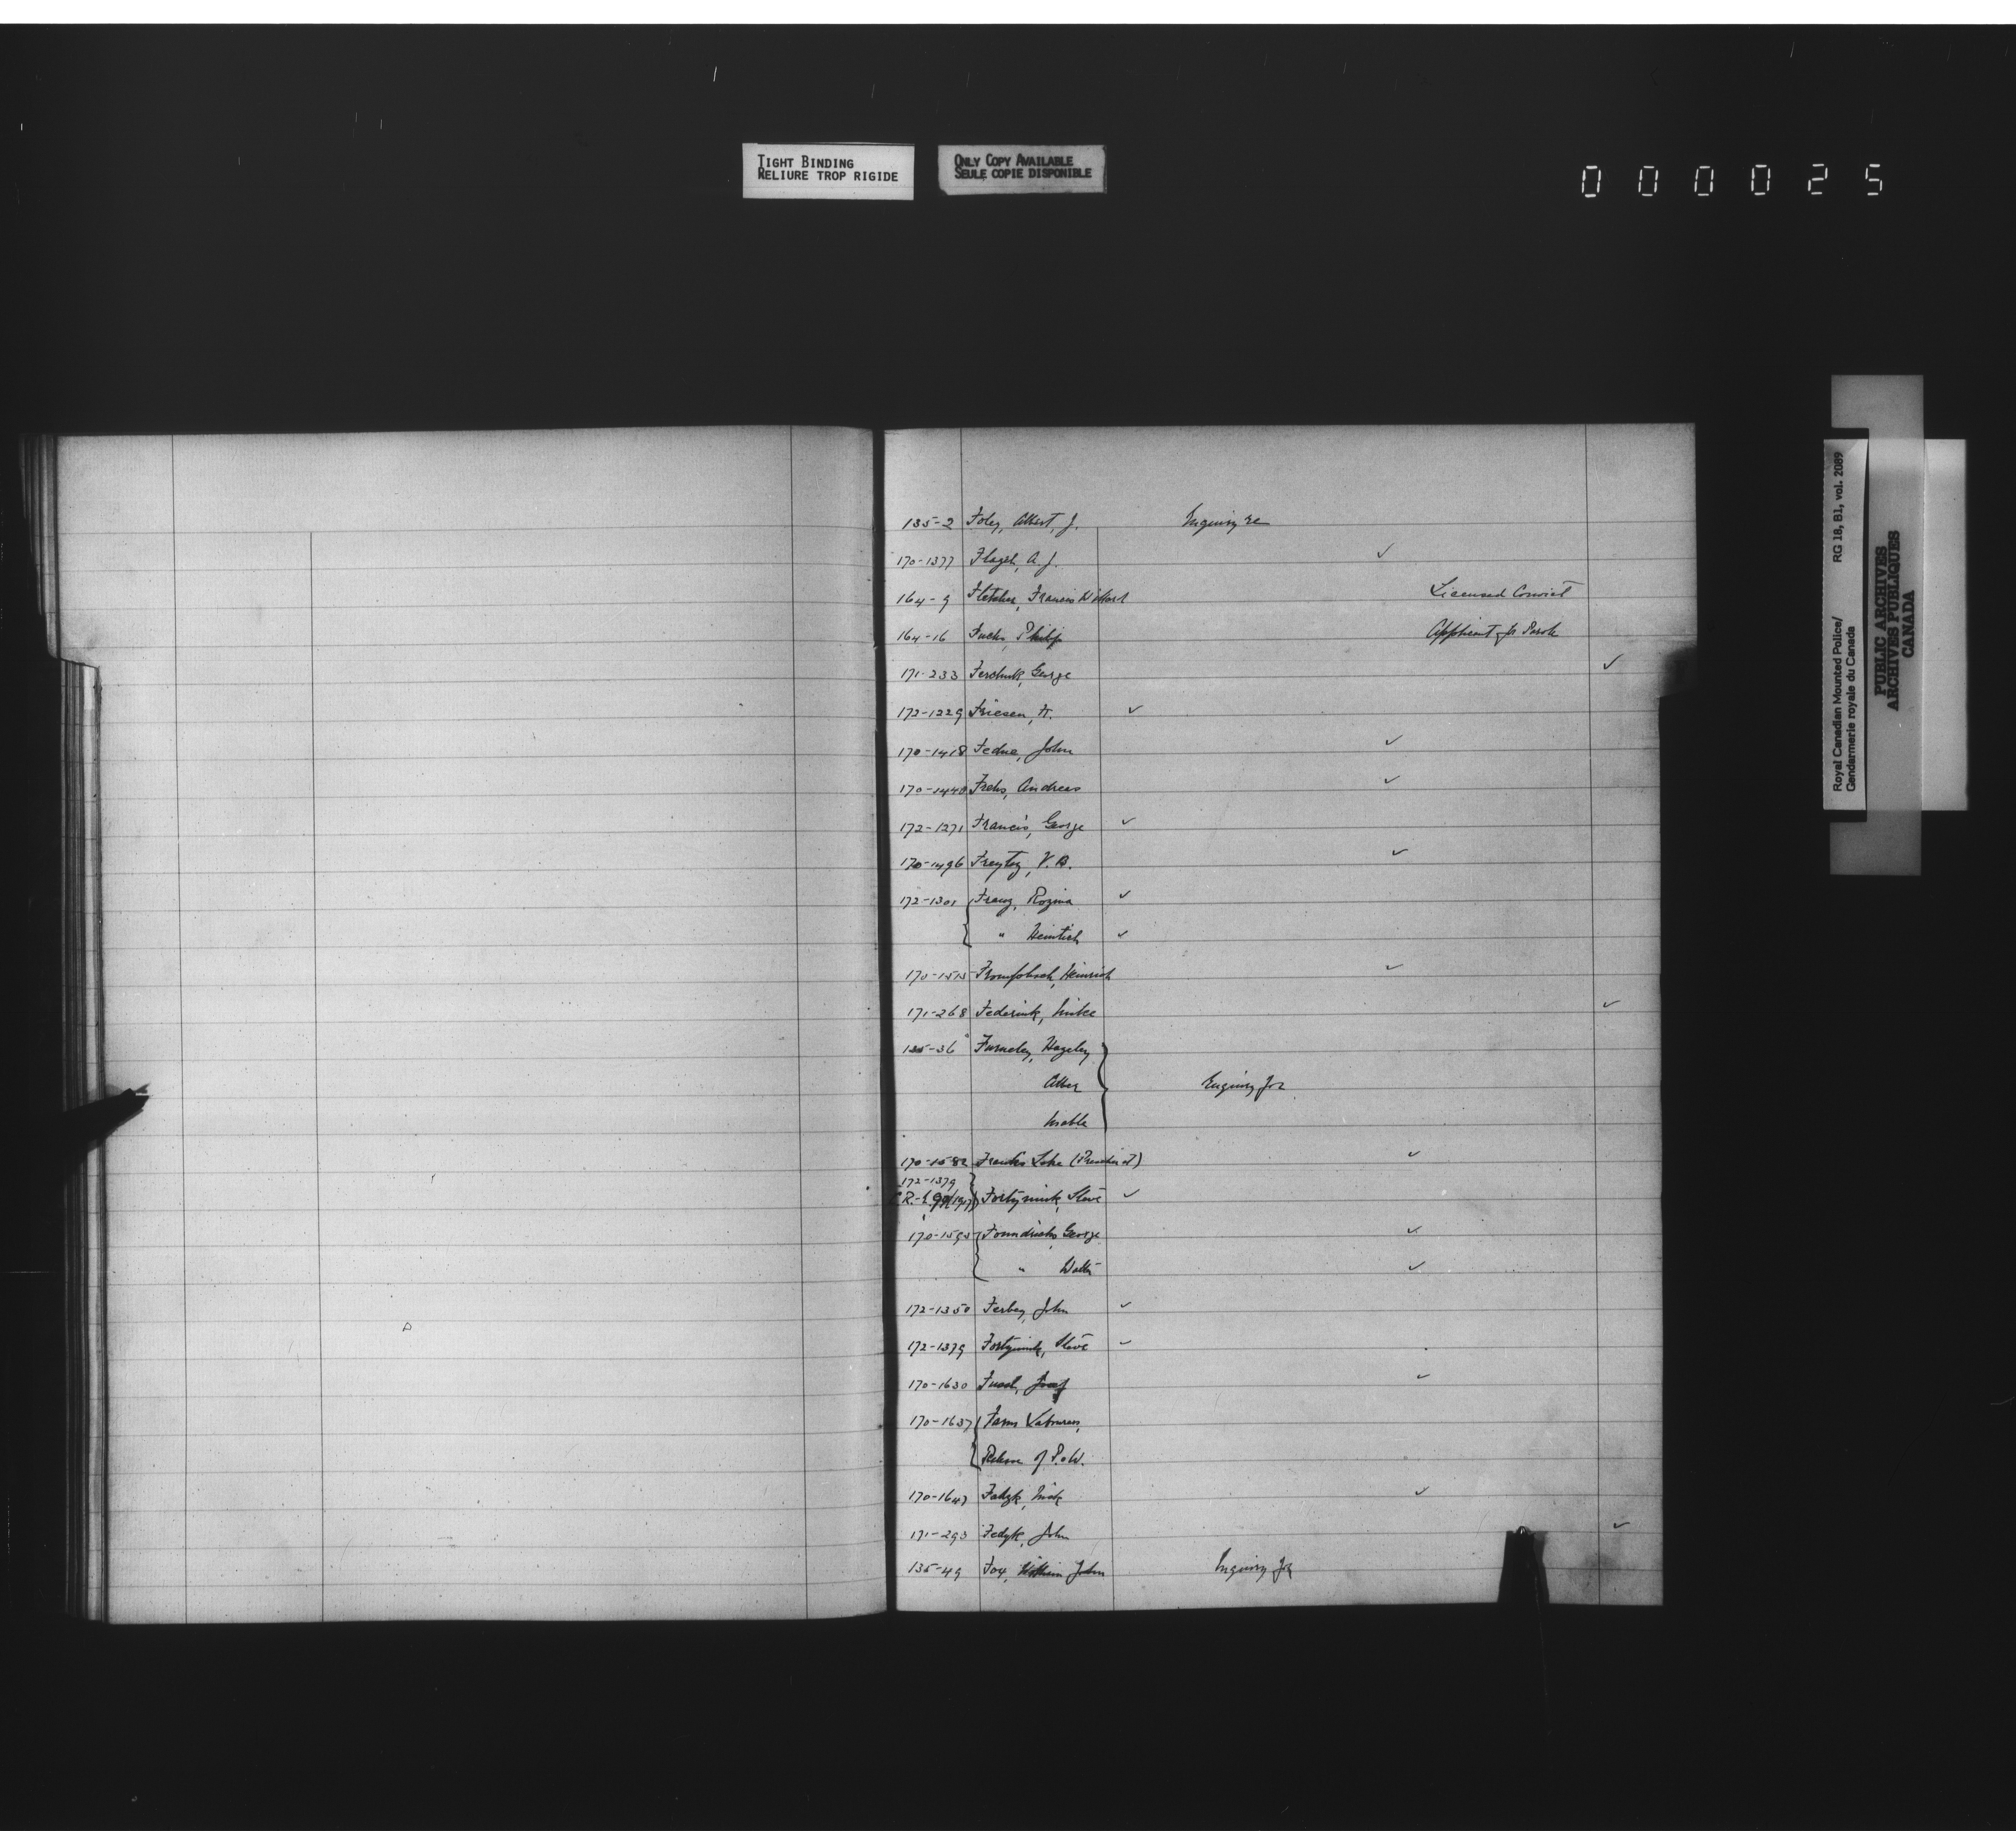 TIGHT BINDING
RELIURE TROP RIGIDE
ONLY COPY AVAILABLE
SEULE COPIE DISPONIBLE
000025
Royal Canadian Mounted Police/ RG 18, B1, vol. 2089
Gendarmerie royale du Canada
PUBLIC ARCHIVES
ARCHIVES PUBLIQUES
CANADA
135-2 Foley, Albert, J. Inquiry re
170-1377 A. J. ✓
164-9 Fletcher, Francis Licensed Convict
164-16 Fuchs, Philip Applicant for Parole
171-233 Ferchuk, George ✓
172-1229 Friesen, H. ✓
170-1418 John ✓
170-1440 Andreas ✓
172-1271 Francis, George ✓
170-1496 Freytag, V. B. ✓
172-1301 Franz, Rozina ✓
" Heinrich ✓
170-1515 Heinrich ✓
171-268 Federiuk, Mike ✓
135-36 Furneley,
Enquiry for
Mable
170-1582 Franks Lake ✓
172-1379
Fortyniuk, Steve ✓
170-1595 George ✓
" ✓
172-1350 Ferbey, John ✓
172-1379 Fortyniuk, Steve ✓
170-1630 ✓
170-1637 Farm Labourers,
Release of P.o.W.
170-1647 ✓
171-293 Fedyk, John ✓
135-49 Fox, William John Inquiry for